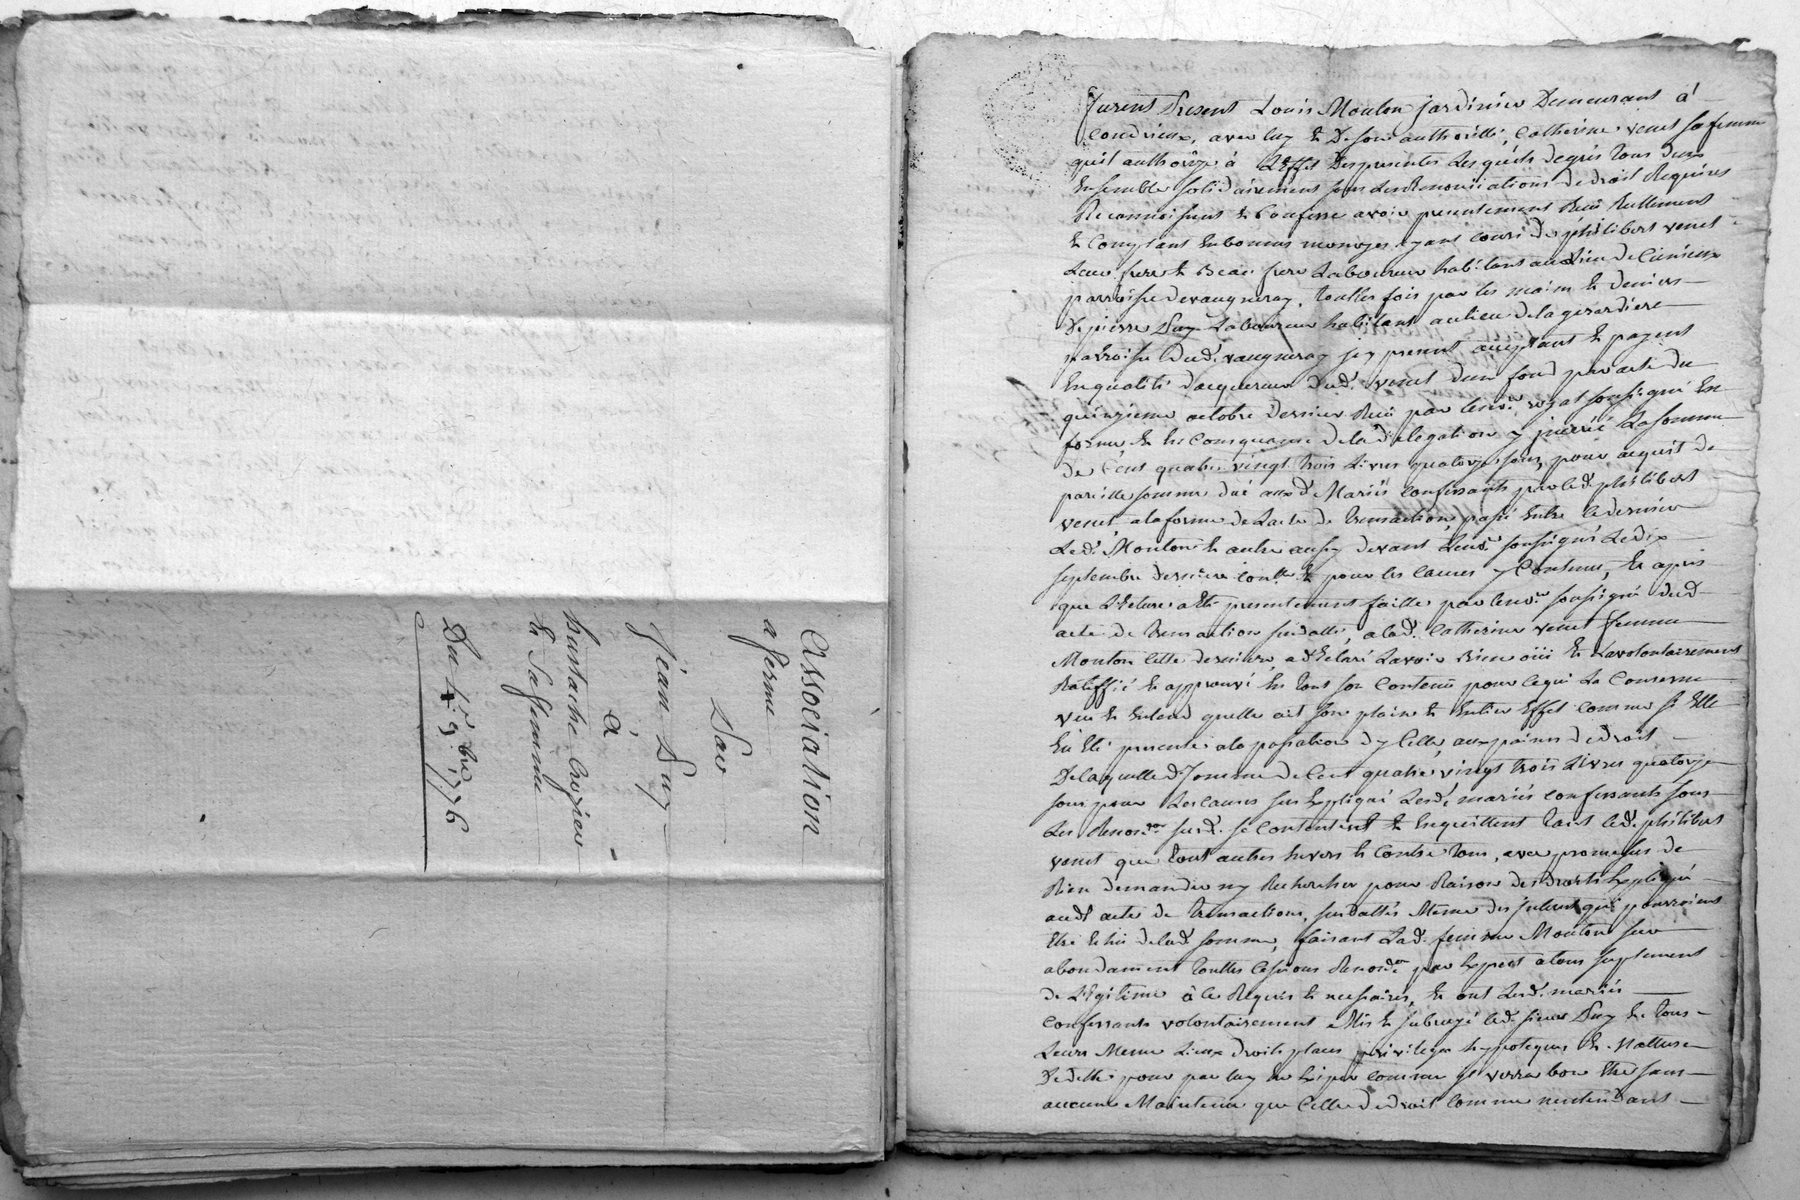 association
a ferme
Par
jean Duy
a
Eustache Crozier
Et Sa femme
Du 4e 9bre 1776
furent Present Louis Mouton jardinier Demeurant à
Condrieux, avec luy Et De son authorité, Catherine venet sa femme
quil authorize à L'effet Des presentes Lesquels de gré Tous deux
Ensemble solidairement sous Les Renonciations de droit Requises
Reconnoissent Et Confesse avoir presentement Reçu Reellement
Et Comptant En bonnes monoyes ayant cours de philibert venet
Leur frere Et Beau frere Laboureur habitant au Lieu de
parroisse de vaugneray, Touttes fois par les mains Et deniers
De pierre Duy Laboureur habitant au lieu de la girardiere
parroisse dud. vaugneray jcy present acceptant Et payent
En qualité d'acquereur dud. venet d'un fond par acte du
quinzieme octobre dernier Reçu par le no.re soussigné En
forme, Et En Consequence de la d. delegation y La somme
de Cent quatre vingt trois Livres quatorze sous, pour acquit de
pareille somme due aux d. Mariés confessants par led. philibert
venet a la forme de L'acte de Transaction passé Entre le dernier
Led. Mouton Et autre aussy devant Le no.re soussigné Le dix
septembre dernier Et pour les causes y Contenu, Et apres
que Lecture a Eté presentement faitte par le no.re soussigné dud
acte de Transaction susdatte, a lad. Catherine venet femme
Mouton Cette derniere a déclaré L'avoir Bien oüi Et La volontairement
Ratiffié Et approuvé En Tout son Contenu pour ce qui La Concerne
veu Et Entend quelle ait son plain Et Entier Effet comme si Elle
Eu Eté presente a la passation d'y Celle, aux peines de droit
De laquelle d. somme de Cent quatre vingt trois Livres quatorze
sous pour Les causes sus Expliqué Lesd. mariés confessants sous
Les Renon.ons susd. se Contentent Et En quittent Tant led. philibert
venet que Tout autres Envers Et Contre Tous, avec promesse de
Rien demander ny Rechercher pour Raison des droits Expliqué
aud acte de Transaction, susdattés Meme des qui pourroient
Etre de lad. somme, faisant Lad. femme Mouton sur
abondament Touttes par Exprest a tous suplement
de L'Egitime à ce Requis Et necessaires, Et ont Lesd. mariés
Confessants volontairement Mis Et subrogé led. pierre Duy En Tous
Leurs Meme Lieux droits places privileges hypoteques Et Nature
De dette pour par luy En comme jl verra bon Etre sans
aucune Maintenue que Celle de droit Comme n'entendant